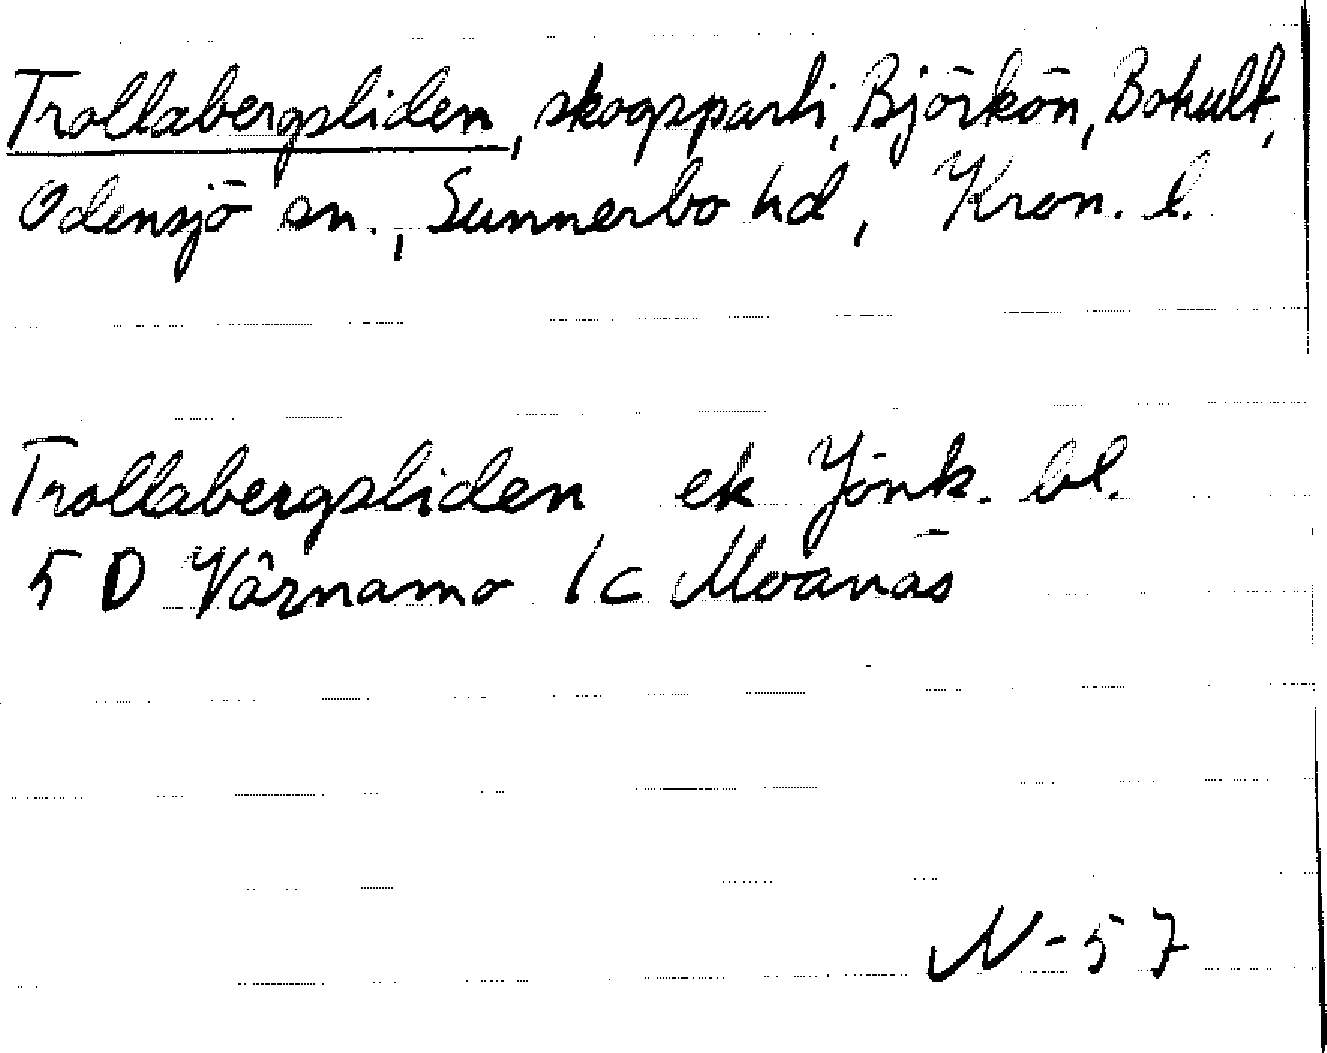 Trollabergsliden, skogsparti, Björkön, Bohult,
Odensjö sn., Sunnerbo hd, Kron. l.
Trollabergsliden ek Jönk. bl.
5 D Värnamo 1c Moanäs
N-57